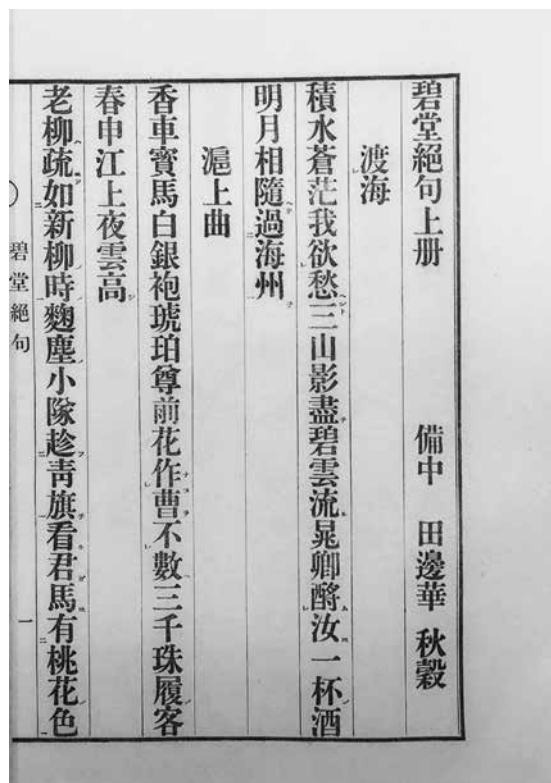 碧堂絕句上册 備中 田邊華 秋穀
渡海
積水蒼茫我欲愁三山影盡碧雲流晁卿酹汝一杯酒
明月相隨過海州
滬上曲
香車寶馬白銀袍琥珀尊前花作曹不數三千珠履客
春申江上夜雲高
老柳疏如新柳時麴塵小隊趁靑旗看君馬有桃花色
碧堂絕句
一